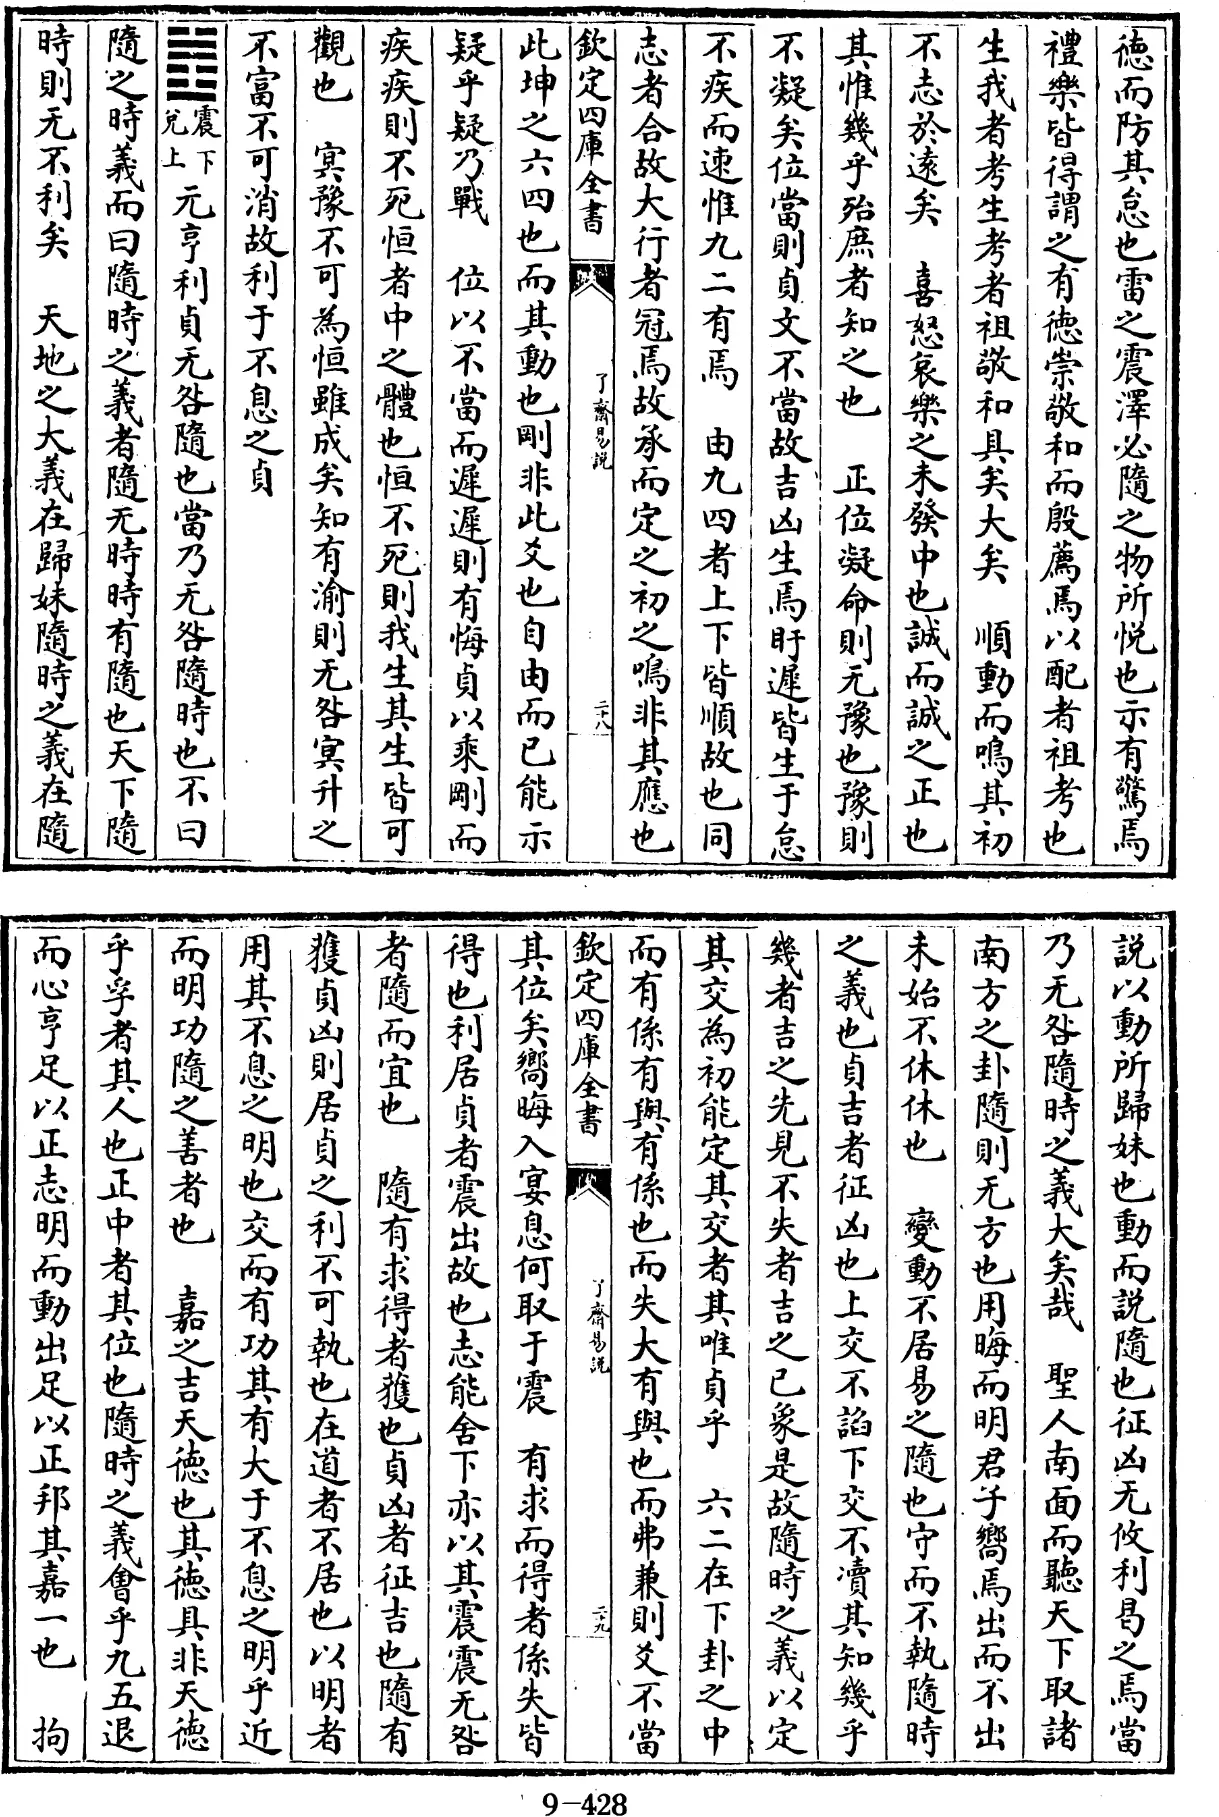 德而防其怠也雷之震澤必隨之物所悦也示有驚焉
禮樂皆得謂之有德崇敬和而殷薦焉以配者祖考也
生我者考生考者祖敬和具矣大矣　順動而鳴其初
不志於遠矣　喜怒哀樂之未發中也誠而誠之正也
其惟幾乎殆庶者知之也　正位凝命則无豫也豫則
不凝矣位當則貞文不當故吉凶生焉盱遲皆生于怠
不疾而速惟九二有焉　由九四者上下皆順故也同
志者合故大行者冠焉故承而定之初之鳴非其應也
欽定四庫全書
了齋易説
二十八
此坤之六四也而其動也剛非此爻也自由而已能示
疑乎疑乃戰　位以不當而遲遲則有悔貞以乘剛而
疾疾則不死恒者中之體也恒不死則我生其生皆可
觀也　冥豫不可為恒雖成矣知有渝則无咎冥升之
不富不可消故利于不息之貞
震下
兌上
元亨利貞无咎隨也當乃无咎隨時也不曰
隨之時義而曰隨時之義者隨无時時有隨也天下隨
時則无不利矣　天地之大義在歸妹隨時之義在隨
説以動所歸妹也動而説隨也征凶无攸利曷之焉當
乃无咎隨時之義大矣哉　聖人南面而聽天下取諸
南方之卦隨則无方也用晦而明君子嚮焉出而不出
未始不休休也　變動不居易之隨也守而不執隨時
之義也貞吉者征凶也上交不諂下交不瀆其知幾乎
幾者吉之先見不失者吉之已象是故隨時之義以定
其交為初能定其交者其唯貞乎　六二在下卦之中
而有係有與有係也而失大有與也而弗兼則爻不當
欽定四庫全書
了齋易説
二十九
其位矣嚮晦入宴息何取于震　有求而得者係失皆
得也利居貞者震出故也志能舍下亦以其震震无咎
者隨而宜也　隨有求得者獲也貞凶者征吉也隨有
獲貞凶則居貞之利不可執也在道者不居也以明者
用其不息之明也交而有功其有大于不息之明乎近
而明功隨之善者也　嘉之吉天德也其德具非天德
乎孚者其人也正中者其位也隨時之義會乎九五退
而心亨足以正志明而動出足以正邦其嘉一也　拘
9-428